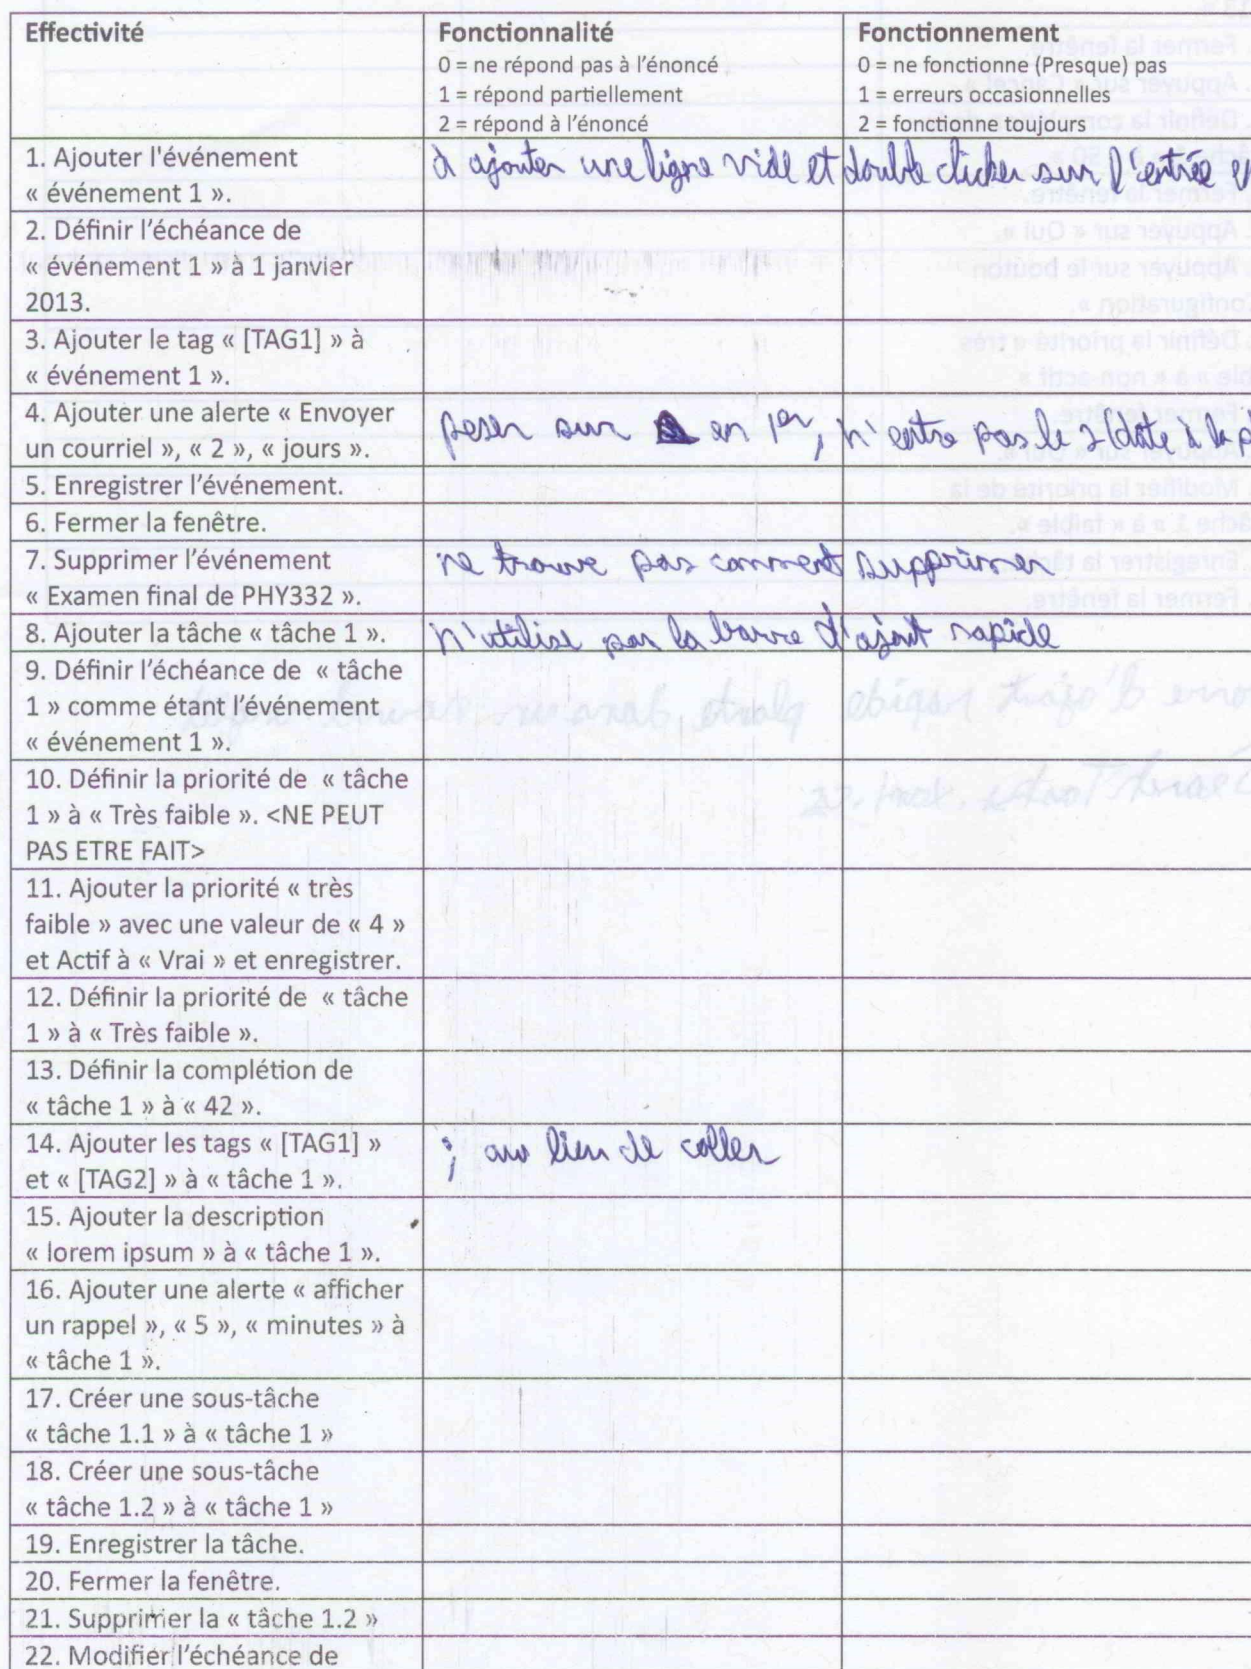 Effectivité
Fonctionnalité
0 = ne répond pas à l'énoncé
1 = répond partiellement
2 = répond à l'énoncé
Fonctionnement
0 = ne fonctionne (Presque) pas
1 = erreurs occasionnelles
2 = fonctionne toujours
1. Ajouter l'événement
« événement 1 ».
à ajouter une ligne vide et double clicker sur l'entrée
2. Définir l'échéance de
« événement 1 » à 1 janvier
2013.
3. Ajouter le tag « [TAG1] » à
« événement 1 ».
4. Ajouter une alerte « Envoyer
un courriel », « 2 », « jours ».
peser sur en 1er, n'entre pas le 2 (date à la
5. Enregistrer l'événement.
6. Fermer la fenêtre.
7. Supprimer l'événement
« Examen final de PHY332 ».
ne trouve pas comment supprimer
8. Ajouter la tâche « tâche 1 ».
n'utilise pas la barre d'ajout rapide
9. Définir l'échéance de « tâche
1 » comme étant l'événement
« événement 1 ».
10. Définir la priorité de « tâche
1 » à « Très faible ». <NE PEUT
PAS ETRE FAIT>
11. Ajouter la priorité « très
faible » avec une valeur de « 4 »
et Actif à « Vrai » et enregistrer.
12. Définir la priorité de « tâche
1 » à « Très faible ».
13. Définir la complétion de
« tâche 1 » à « 42 ».
14. Ajouter les tags « [TAG1] »
et « [TAG2] » à « tâche 1 ».
; au lieu de coller
15. Ajouter la description
« lorem ipsum » à « tâche 1 ».
16. Ajouter une alerte « afficher
un rappel », « 5 », « minutes » à
« tâche 1 ».
17. Créer une sous-tâche
« tâche 1.1 » à « tâche 1 »
18. Créer une sous-tâche
« tâche 1.2 » à « tâche 1 »
19. Enregistrer la tâche.
20. Fermer la fenêtre.
21. Supprimer la « tâche 1.2 »
22. Modifier l'échéance de